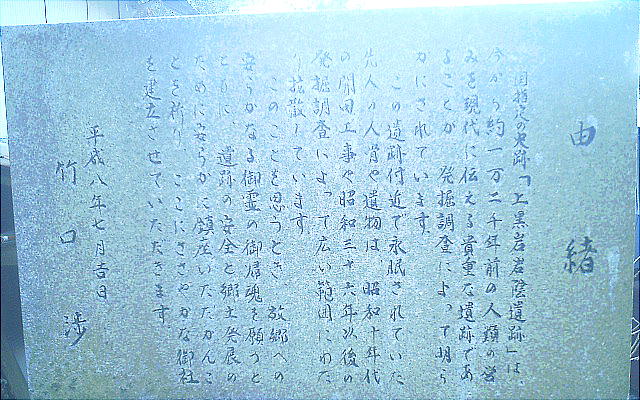 由緒
国指定の史跡「上黒岩岩陰遺跡」は、
今から約一万二千年前の人類の営
みを現代に伝える貴重な遺跡であ
ることが、発掘調査によって明ら
かにされています。
この遺跡付近で永眠されていた
先人の人骨や遺物は、昭和十年代
の開田工事や昭和三十六年以後の
発掘調査によって広い範囲にわた
り拡散しています。
このことを思うとき、故郷への
安らかなる御霊の御帰魂を願うと
ともに、遺跡の安全と郷土発展の
ために安らかに鎮座いただかんこ
とを祈り、ここにささやかな御社
を建立させていただきます。
平成八年七月吉日
竹口渉